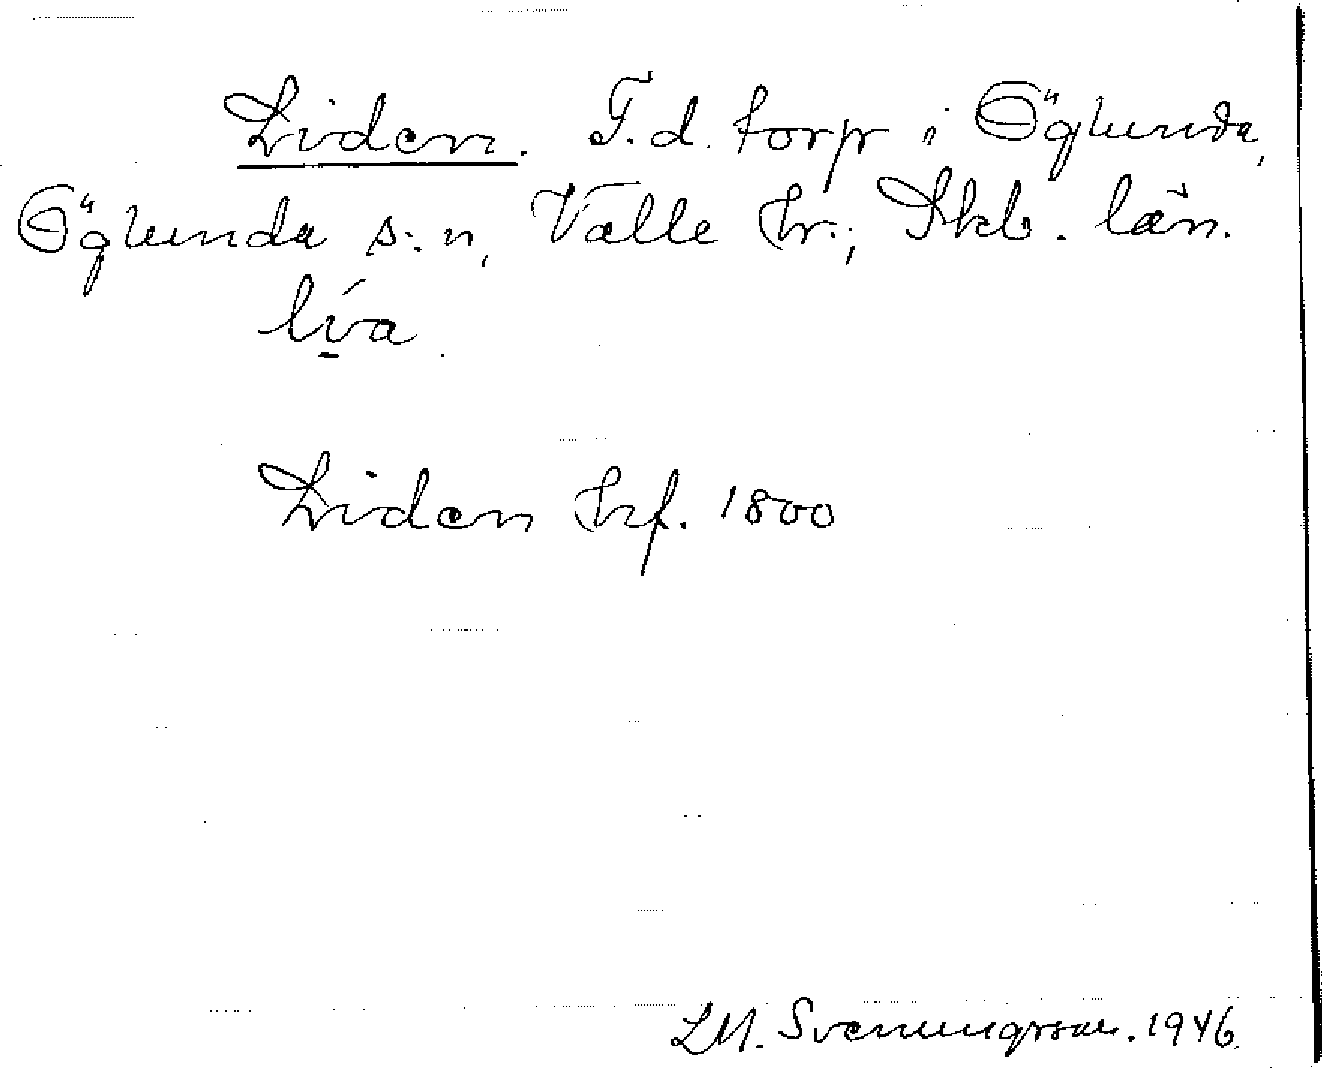 Liden. F.d. torp i Öglunda,
Öglunda s:n, Valle hr.; Skb. län.
lí̲a
Liden hrf. 1800
LM. Svenungsson. 1946.